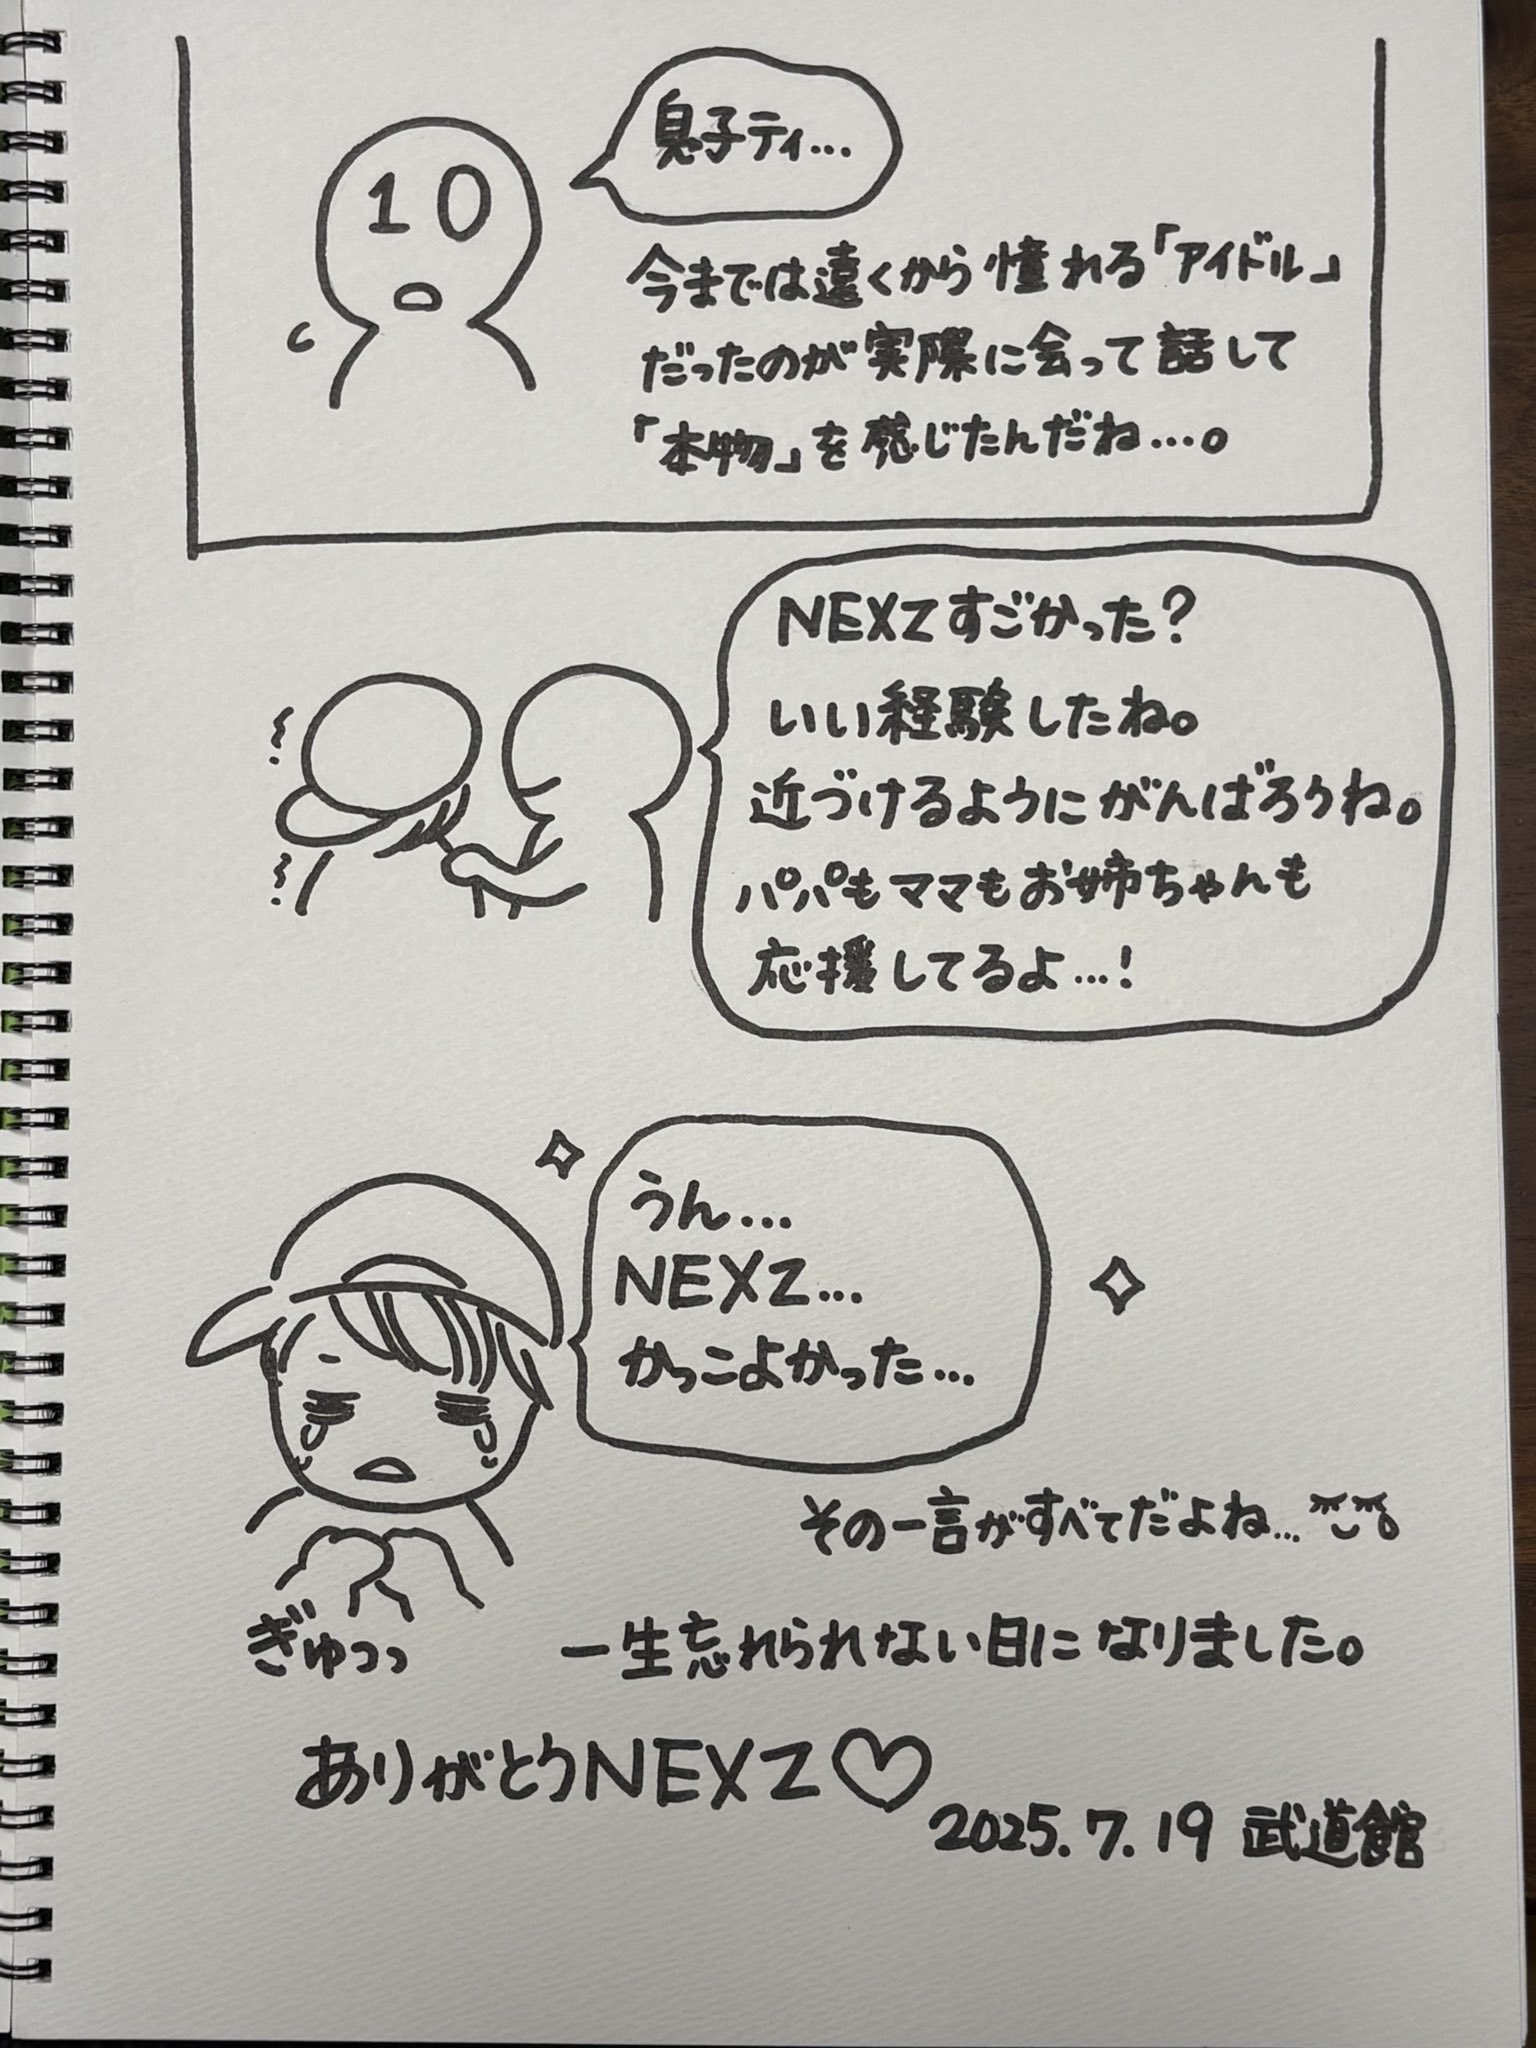 息子ティ…
10
今までは遠くから憧れる「アイドル」
だったのが実際に会って話して
「本物」を感じたんだね…。
NEXZすごかった?
いい経験したね。
近づけるようにがんばろうね。
パパもママもお姉ちゃんも
応援してるよ…!
うん…
NEXZ…
かっこよかった…
その一言がすべてだよね…
ぎゅっっ
一生忘れられない日になりました。
ありがとうNEXZ♡
2025.7.19 武道館